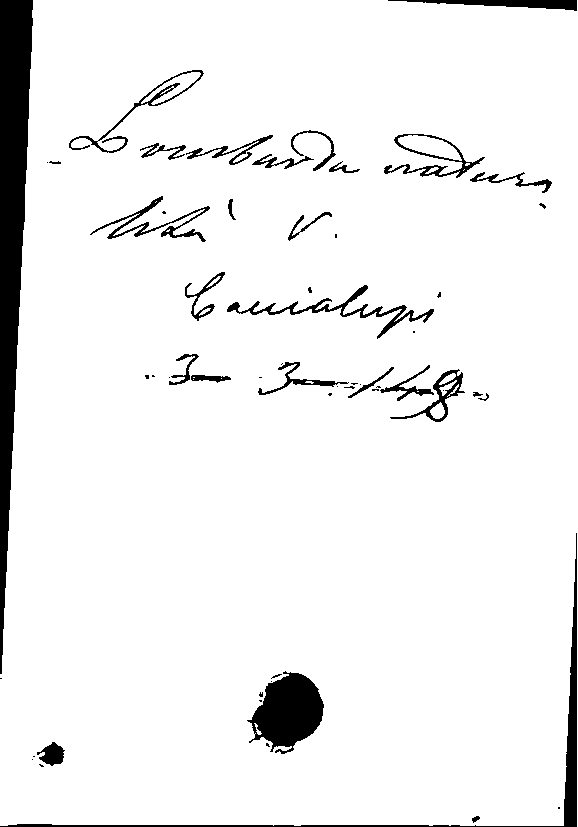 Lombarda natura
lità V.
Caccialupi
3 - 3 - 148